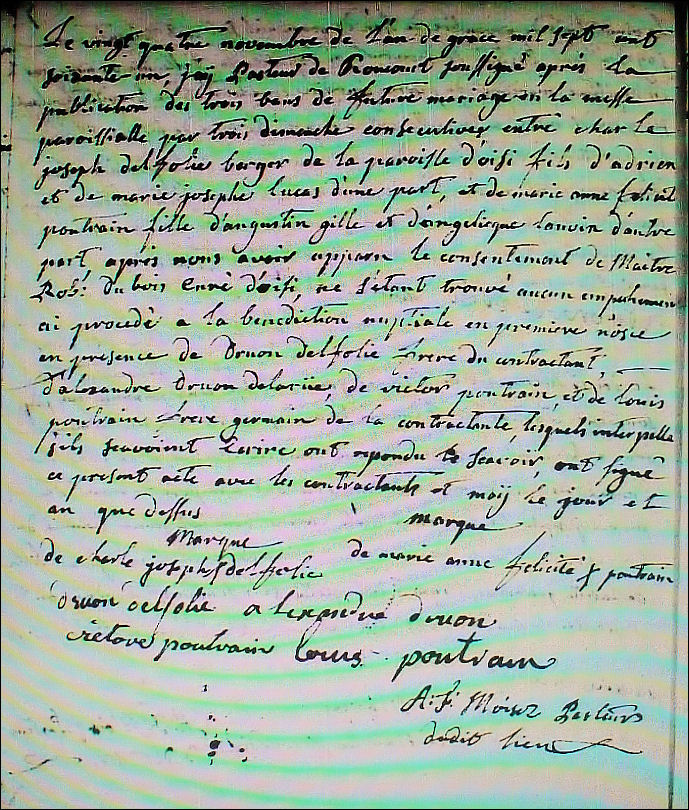 Le vingt quatre novembre de l'an de grace mil sept cent
soixante un, j'aij Pasteur de Romcourt soussigné après la
publication des trois bans de future mariage en la messe
paroissialle par trois dimanche consecutives entre charle
joseph delfolie berger de la paroisse d'oisi fils d'adrien
et de marie josephe lucas d'une part, et de marie anne felicité
poutrain fille d'augustin gille et d'angelicque lanvin d'autre
part après nous avoir apparu le consentement de Maitre
Rob: dubois Curé d'oisi, ne s'étant trouvé aucun empechement
ai procedé a la benediction nuptiale en premiere nôsce
en presence de Druon delfolie frere du contractant,
d'alexandre druon delarue, de victor poutrain, et de louis
poutrain frere germain de la contractante, lesquels interpelle
s'ils scavoient Ecrire ont repondu le scavoir, ont signé
ce present acte avec les contractants et moij le jour et
an que dessus
Marque marque
de charle joseph delfolie de marie anne felicité poutrain
druon delfolie alexandre druon
victore poutrain Louis poutrain
A: F: Moisez Pasteur
dudit lieu